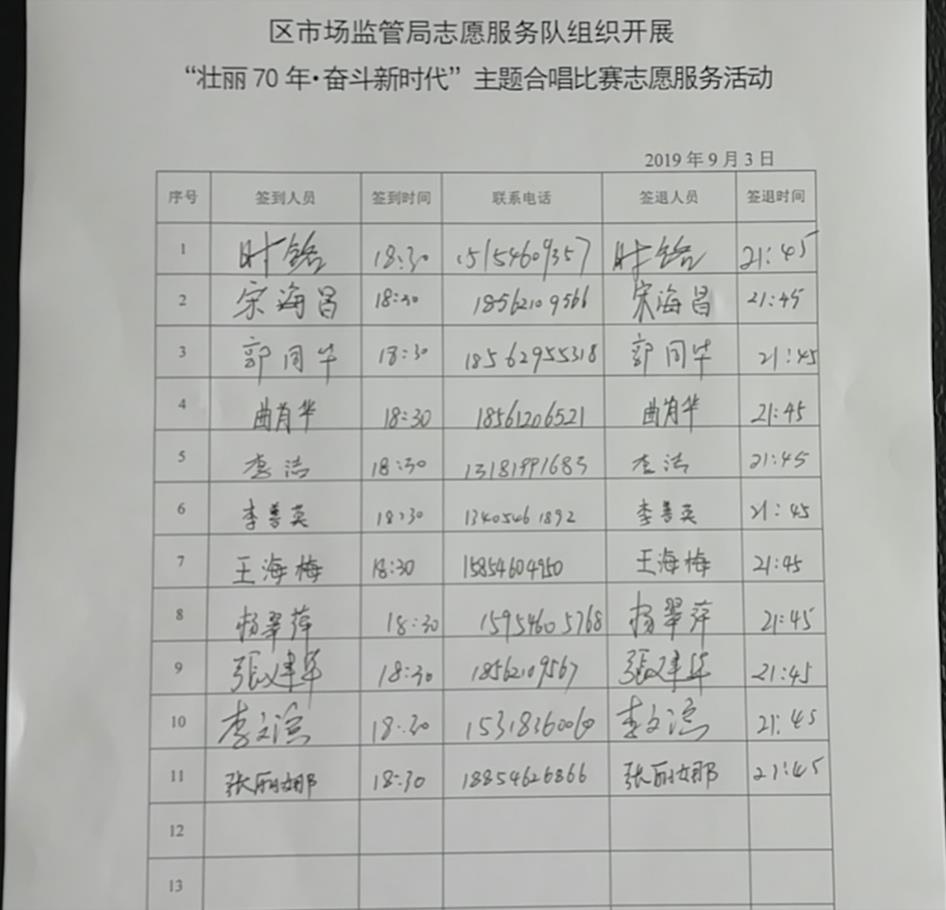 区市场监管局志愿服务队组织开展
“壮丽 70 年·奋斗新时代”主题合唱比赛志愿服务活动
2019 年 9 月 3 日
序号 签到人员 签到时间 联系电话 签退人员 签退时间
1 时铭 18:30 15154609357 时铭 21:45
2 宋海昌 18:30 18562109566 宋海昌 21:45
3 郭同华 18:30 18562955318 郭同华 21:45
4 曲肖华 18:30 18561206521 曲肖华 21:45
5 李洁 18:30 13181991683 李洁 21:45
6 李善英 18:30 13405461892 李善英 21:45
7 王海梅 18:30 15854604950 王海梅 21:45
8 杨翠萍 18:30 15954605768 杨翠萍 21:45
9 张建华 18:30 18562109567 张建华 21:45
10 李文 18:30 李文 21:45
11 张丽娜 18:30 18854626866 张丽娜 21:45
12
13